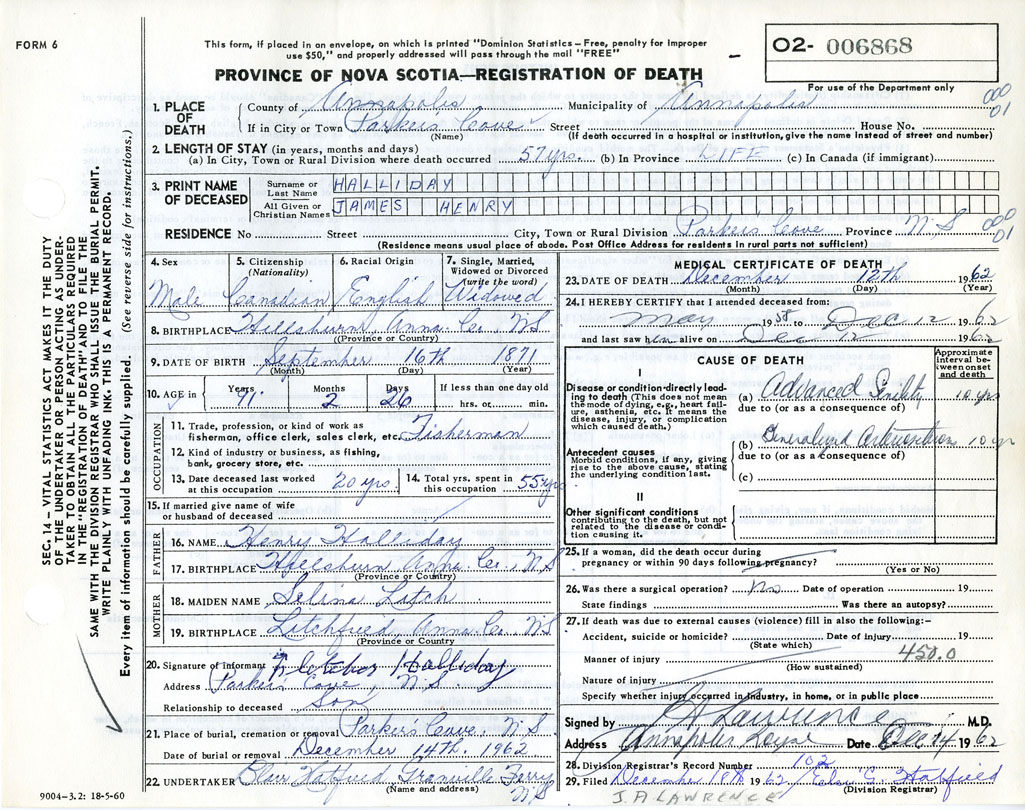 FORM 6
This form, if placed in an envelope, on which is printed "Dominion Statistics – Free, penalty for improper
use $50," and properly addressed will pass through the mail "FREE"
PROVINCE OF NOVA SCOTIA—REGISTRATION OF DEATH
02- 006868
For use of the Department only
SEC. 14 – VITAL STATISTICS ACT MAKES IT THE DUTY
OF THE UNDERTAKER OR PERSON ACTING AS UNDER-
TAKER TO OBTAIN ALL THE PARTICULARS REQUIRED
IN THE "REGISTRATION OF DEATH" AND TO FILE THE
SAME WITH THE DIVISION REGISTRAR WHO SHALL ISSUE THE BURIAL PERMIT.
WRITE PLAINLY WITH UNFADING INK. THIS IS A PERMANENT RECORD.
Every item of information should be carefully supplied. (See reverse side for instructions.)
1. PLACE OF DEATH
County of Annapolis Municipality of Annapolis
000
01
If in City or Town Parker's Cove Street House No.
(Name) (If death occurred in a hospital or institution, give the name instead of street and number)
2. LENGTH OF STAY (in years, months and days)
(a) In City, Town or Rural Division where death occurred 57 yrs. (b) In Province LIFE (c) In Canada (if immigrant)
3. PRINT NAME OF DECEASED
Surname or Last Name HALLIDAY
All Given or Christian Names JAMES HENRY
RESIDENCE No. Street City, Town or Rural Division Parker's Cove Province N.S
000
01
(Residence means usual place of abode. Post Office Address for residents in rural parts not sufficient)
4. Sex Male
5. Citizenship (Nationality) Canadian
6. Racial Origin English
7. Single, Married, Widowed or Divorced (write the word) Widowed
8. BIRTHPLACE Hillsburn, Anna. Co. NS
(Province or Country)
9. DATE OF BIRTH September 16th 1871
(Month) (Day) (Year)
10. AGE in Years 91 Months 2 Days 26 If less than one day old
hrs. or min.
OCCUPATION
11. Trade, profession, or kind of work as
fisherman, office clerk, sales clerk, etc. Fisherman
12. Kind of industry or business, as fishing,
bank, grocery store, etc.
13. Date deceased last worked
at this occupation 20 yrs
14. Total yrs. spent in
this occupation 55 yrs
15. If married give name of wife
or husband of deceased
FATHER
16. NAME Henry Halliday
17. BIRTHPLACE Hillsburn Anna. Co., N.S
(Province or Country)
MOTHER
18. MAIDEN NAME Selina Litch
19. BIRTHPLACE Litchfield, Anna. Co., NS
(Province or Country)
20. Signature of informant Halliday
Address Parker's Cove, N.S.
Relationship to deceased Son
21. Place of burial, cremation or removal Parker's Cove, N.S
Date of burial or removal December 14th. 1962
22. UNDERTAKER Blair Hatfield Granville Ferry
N.S
(Name and address)
9004–3.2: 18-5-60
MEDICAL CERTIFICATE OF DEATH
23. DATE OF DEATH December 12th 1962
(Month) (Day) (Year)
24. I HEREBY CERTIFY that I attended deceased from:
May 1958 to Dec 12 1962
and last saw him alive on Dec 12 1962
CAUSE OF DEATH
Approximate interval between onset and death
I
Disease or condition directly lead-
ing to death (This does not mean
the mode of dying, e.g., heart failure,
asthenia, etc. It means the
disease, injury, or complication
which caused death.)
(a) Advanced Senility 10 yrs
due to (or as a consequence of)
Antecedent causes
Morbid conditions, if any, giving
rise to the above cause, stating
the underlying condition last.
(b) Generalized 10 yr
due to (or as a consequence of)
(c)
II
Other significant conditions
contributing to the death, but not
related to the disease or condi-
tion causing it.
25. If a woman, did the death occur during
pregnancy or within 90 days following pregnancy?
(Yes or No)
26. Was there a surgical operation? No Date of operation 19
State findings Was there an autopsy?
27. If death was due to external causes (violence) fill in also the following:–
Accident, suicide or homicide? Date of injury 19
(State which)
Manner of injury 450.0
(How sustained)
Nature of injury
Specify whether injury occurred in industry, in home, or in public place
Signed by J A Lawrence M.D.
Address Annapolis Royal Date Dec 14 1962
28. Division Registrar's Record Number 102
29. Filed December 18th 1962 Hatfield
(Division Registrar)
J.A LAWRENCE